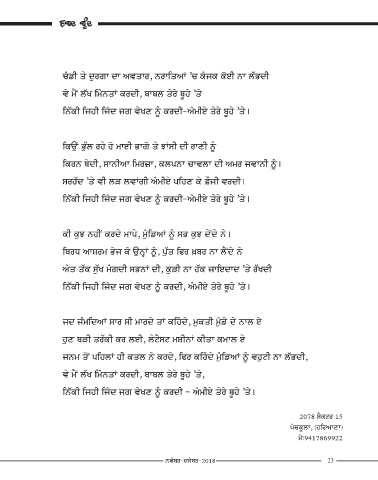 ਸ਼ਬਦ ਬੂੰਦ
ਚੰਡੀ ਤੇ ਦੁਰਗਾ ਦਾ ਅਵਤਾਰ, ਨਰਾਤਿਆਂ 'ਚ ਕੰਜਕ ਕੋਈ ਨਾ ਲੱਭਦੀ
ਵੇ ਮੈਂ ਲੱਖ ਮਿੰਨਤਾਂ ਕਰਦੀ, ਬਾਬਲ ਤੇਰੇ ਬੂਹੇ 'ਤੇ
ਨਿੱਕੀ ਜਿਹੀ ਜਿੰਦ ਜਗ ਵੇਖਣ ਨੂੰ ਕਰਦੀ-ਅੰਮੀਏ ਤੇਰੇ ਬੂਹੇ 'ਤੇ।
ਕਿਉਂ ਭੁੱਲ ਰਹੇ ਹੋ ਮਾਈ ਭਾਗੋ ਤੇ ਝਾਂਸੀ ਦੀ ਰਾਣੀ ਨੂੰ
ਕਿਰਨ ਬੇਦੀ, ਸਾਨੀਆ ਮਿਰਜ਼ਾ, ਕਲਪਨਾ ਚਾਵਲਾ ਦੀ ਅਮਰ ਜਵਾਨੀ ਨੂੰ।
ਸਰਹੱਦ 'ਤੇ ਵੀ ਲੜ ਲਵਾਂਗੀ ਅੰਮੀਏ ਪਹਿਣ ਕੇ ਫ਼ੌਜੀ ਵਰਦੀ।
ਨਿੱਕੀ ਜਿਹੀ ਜਿੰਦ ਜਗ ਵੇਖਣ ਨੂੰ ਕਰਦੀ-ਅੰਮੀਏ ਤੇਰੇ ਬੂਹੇ 'ਤੇ।
ਕੀ ਕੁਝ ਨਹੀਂ ਕਰਦੇ ਮਾਪੇ, ਮੁੰਡਿਆਂ ਨੂੰ ਸਭ ਕੁਝ ਦੇਂਦੇ ਨੇ।
ਬਿਰਧ ਆਸ਼ਰਮ ਭੇਜ ਕੇ ਉਨ੍ਹਾਂ ਨੂੰ, ਪੁੱਤ ਫਿਰ ਖ਼ਬਰ ਨਾ ਲੈਂਦੇ ਨੇ
ਅੰਤ ਤੱਕ ਸੁੱਖ ਮੰਗਦੀ ਸਭਨਾਂ ਦੀ, ਕੁੜੀ ਨਾ ਹੱਕ ਜਾਇਦਾਦ 'ਤੇ ਰੱਖਦੀ
ਨਿੱਕੀ ਜਿਹੀ ਜਿੰਦ ਜਗ ਵੇਖਣ ਨੂੰ ਕਰਦੀ, ਅੰਮੀਏ ਤੇਰੇ ਬੂਹੇ 'ਤੇ।
ਜਦ ਜੰਮਦਿਆਂ ਸਾਰ ਸੀ ਮਾਰਦੇ ਤਾਂ ਕਹਿੰਦੇ, ਮੁਕਤੀ ਮੁੰਡੇ ਦੇ ਨਾਲ ਏ
ਹੁਣ ਬੜੀ ਤਰੱਕੀ ਕਰ ਲਈ, ਲੇਟੈਸਟ ਮਸ਼ੀਨਾਂ ਕੀਤਾ ਕਮਾਲ ਏ
ਜਨਮ ਤੋਂ ਪਹਿਲਾਂ ਹੀ ਕਤਲ ਨੇ ਕਰਦੇ, ਫਿਰ ਕਹਿੰਦੇ ਮੁੰਡਿਆਂ ਨੂੰ ਵਹੁਟੀ ਨਾ ਲੱਭਦੀ,
ਵੇ ਮੈਂ ਲੱਖ ਮਿੰਨਤਾਂ ਕਰਦੀ, ਬਾਬਲ ਤੇਰੇ ਬੂਹੇ 'ਤੇ,
ਨਿੱਕੀ ਜਿਹੀ ਜਿੰਦ ਜਗ ਵੇਖਣ ਨੂੰ ਕਰਦੀ - ਅੰਮੀਏ ਤੇਰੇ ਬੂਹੇ 'ਤੇ।
2078 ਸੈਕਟਰ 15
ਪੰਚਕੂਲਾ, (ਹਰਿਆਣਾ)
ਮੋ:9417869922
ਨਵੰਬਰ-ਦਸੰਬਰ-2018
23